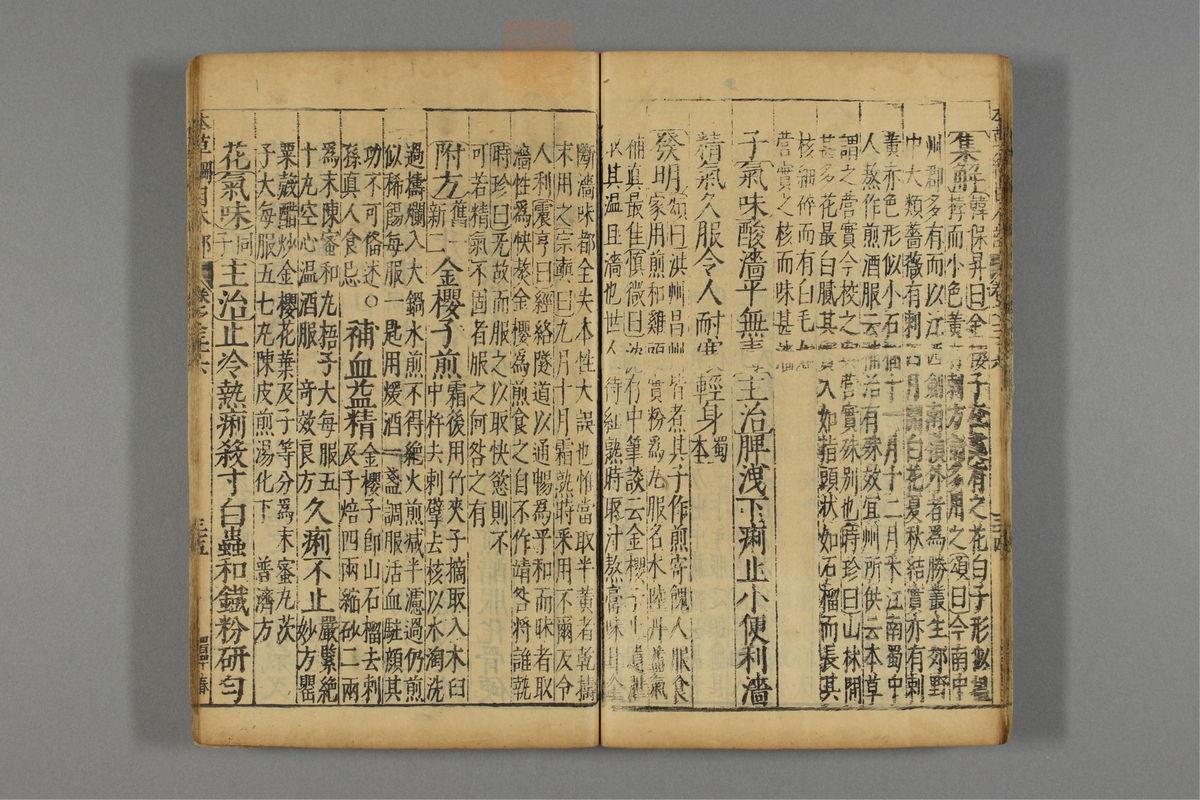 集解韓保昇曰金櫻子在處有之花白子形似榅
桲而小色黃有刺方術多用之頌曰今南中
州郡多有而以江西劍南嶺外者爲勝叢生郊野
中大類薔薇有刺四月開白花夏秋結實亦有刺
黃赤色形似小石榴十一月十二月采江南蜀中
人蒸作煎酒服云補治有殊效宜州所供云本草
謂之營實今校之與營實殊別也時珍曰山林間
甚多花最白膩其實大如指頭狀如石榴而長其
核細碎而有白毛如
營實之核而味甚濇
子氣味酸濇平無毒主治脾洩下痢止小便利濇
精氣久服令人耐寒輕身蜀本
發明頌曰洪州昌州皆煮其子作煎寄饋人服食
家用煎和雞頭實粉爲丸服名水陸丹益氣
補眞最佳愼微曰沈存中筆談云金櫻子止遺洩
取其温且濇也世人待紅熟時取汁熬膏味甘全
斷濇味都全失本性大誤也惟當取半黃者乾擣
末用之宗奭曰九月十月霜熟時采用不爾反令
人利震亨曰經絡隧道以通暢爲平和而昧者取
濇性爲快熬金櫻爲煎食之自不作靖咎將誰執
時珍曰无故而服之以取快慾則不
可若精氣不固者服之何咎之有
附方舊一新二金櫻子煎霜後用竹夾子摘取入木臼
中杵去刺擘去核以水淘洗
過擣爛入大鍋水煎不得絶火煎減半濾過仍煎
似稀餳每服一匙用煖酒一盞調服活血駐顔其
功不可備述〇
孫眞人食忌
補血益精金櫻子卽山石榴去刺
及子焙四兩縮砂二兩
爲末煉蜜和丸梧子大每服五
十丸空心温酒服 奇效良方
久痢不止嚴緊絶
妙方罌
粟殼醋炒金櫻花葉及子等分爲末蜜丸芡
子大每服五七丸陳皮煎湯化下 普濟方
花氣味同子主治止冷熱痢殺寸白蟲和鐵粉研勻
本草綱目木部 卷之三十六 三十五